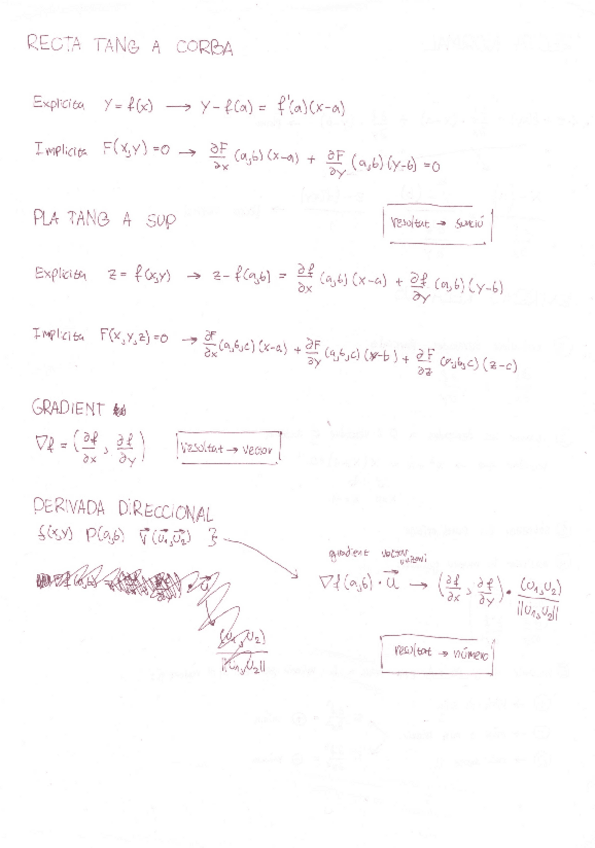 RECTA TANG A CORBA
Explicita y = f(x) → y - f(a) = f'(a)(x-a)
Implicita F(x,y) = 0 → ∂F/∂x (a,b)(x-a) + ∂F/∂y (a,b)(y-b) = 0
PLA TANG A SUP
resoltat → funció
Explicita z = f(x,y) → z - f(a,b) = ∂f/∂x (a,b)(x-a) + ∂f/∂y (a,b)(y-b)
Implicita F(x,y,z) = 0 → ∂F/∂x (a,b,c)(x-a) + ∂F/∂y (a,b,c)(y-b) + ∂F/∂z (a,b,c)(z-c)
GRADIENT
∇f = (∂f/∂x, ∂f/∂y)
resoltat → vector
DERIVADA DIRECCIONAL
f(x,y) P(a,b) v⃗(u⃗₁,u⃗₂) }
gradient vector unitari
∇f(a,b) · u⃗ → (∂f/∂x, ∂f/∂y) · (u₁,u₂)/||u₁,u₂||
(u₁,u₂)/||u₁,u₂||
resoltat → número